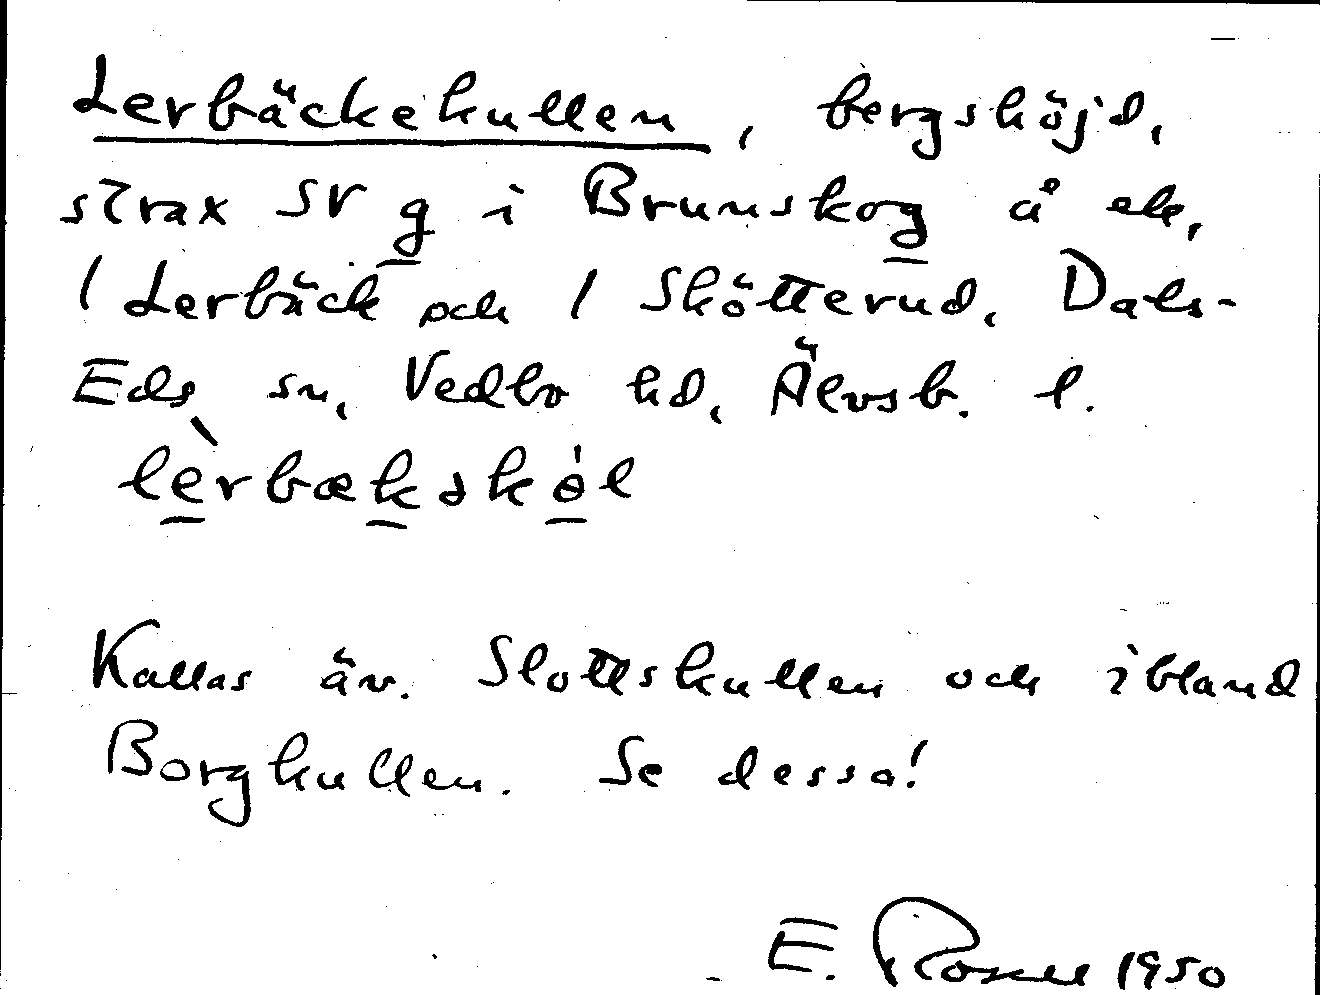 Lerbäckekullen, bergshöjd,
strax SV g i Brunskog å ek,
1 Lerbäck och 1 Skötterud, Dals-
Eds sn, Vedbo hd, Älvsb. l.
lèrbækskól
Kallas äv. Slottskullen och ibland
Borgkullen. Se dessa!
E. Rosell 1950